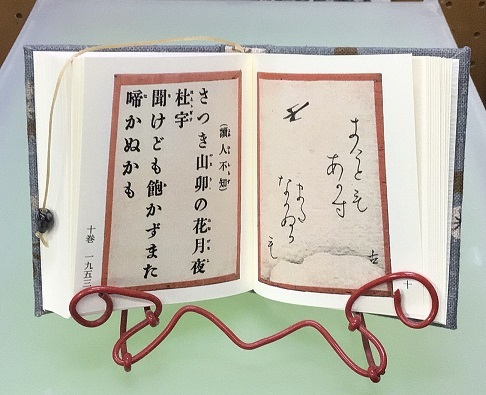 あかす
また
なかぬか
も
十
(讀人不知)
さつき山卯の花月夜
杜宇
聞けども飽かずまた
啼かぬかも
十巻 一九五三